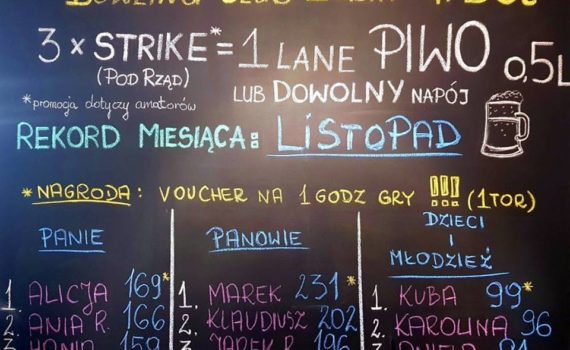 3 x STRIKE* = 1 LANE PIWO 0,5L
(POD RZĄD)
LUB DOWOLNY NAPÓJ
*promocja dotyczy amatorów
REKORD MIESIĄCA: LISTOPAD
*NAGRODA: VOUCHER NA 1 GODZ GRY !!! (1 TOR)
PANIE
1. ALICJA 169*
2. ANIA R. 166
159
PANOWIE
1. MAREK 231*
2. KLAUDIUSZ 202
3. JAREK P. 196
DZIECI
I
MŁODZIEŻ
1. KUBA 99*
2. KAROLINA 96